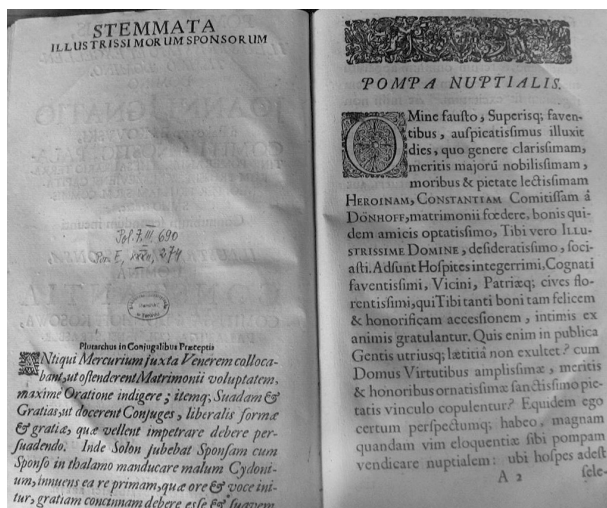 STEMMATA
ILLUSTRISSIMORUM SPONSORUM
Pol. 7. III. 690
Plutarchus in Conjugalibus Præceptis
ANtiqui Mercurium juxta Venerem colloca-
bant, ut ostenderent Matrimonii voluptatem,
maxime Oratione indigere; itemq; Suadam &
Gratias, ut docerent Conjuges, liberalis formæ
& gratiæ, quæ vellent impetrare debere per-
suadendo. Inde Solon jubebat Sponsam cum
Sponso in thalamo manducare malum Cydoni-
um, innuens ea re primam, quæ ore & voce ini-
tur, gratiam concinnam debere esse & suavem
POMPA NUPTIALIS.
OMine fausto, Superisq; faven-
tibus, auspicatissimus illuxit
dies, quo genere clarissimam,
meritis majorũ nobilissimam,
moribus & pietate lectissimam
HEROINAM, CONSTANTIAM Comitissam â
DÖNHOFF, matrimonii fœdere, bonis qui-
dem amicis optatissimo, Tibi vero ILLU-
STRISSIME DOMINE, desideratissimo, soci-
asti. Adsunt Hospites integerrimi, Cognati
faventissimi, Vicini, Patriæq; cives flo-
rentissimi, qui Tibi tanti boni tam felicem
& honorificam accessionem, intimis ex
animis gratulantur. Quis enim in publica
Gentis utriusq; lætitiâ non exultet? cum
Domus Virtutibus amplissimæ, meritis
& honoribus ornatissimæ sanctissimo pie-
tatis vinculo copulentur? Equidem ego
certum perspectumq; habeo, magnam
quandam vim eloquentiæ sibi pompam
vendicare nuptialem: ubi hospes adest
A 2 sele-